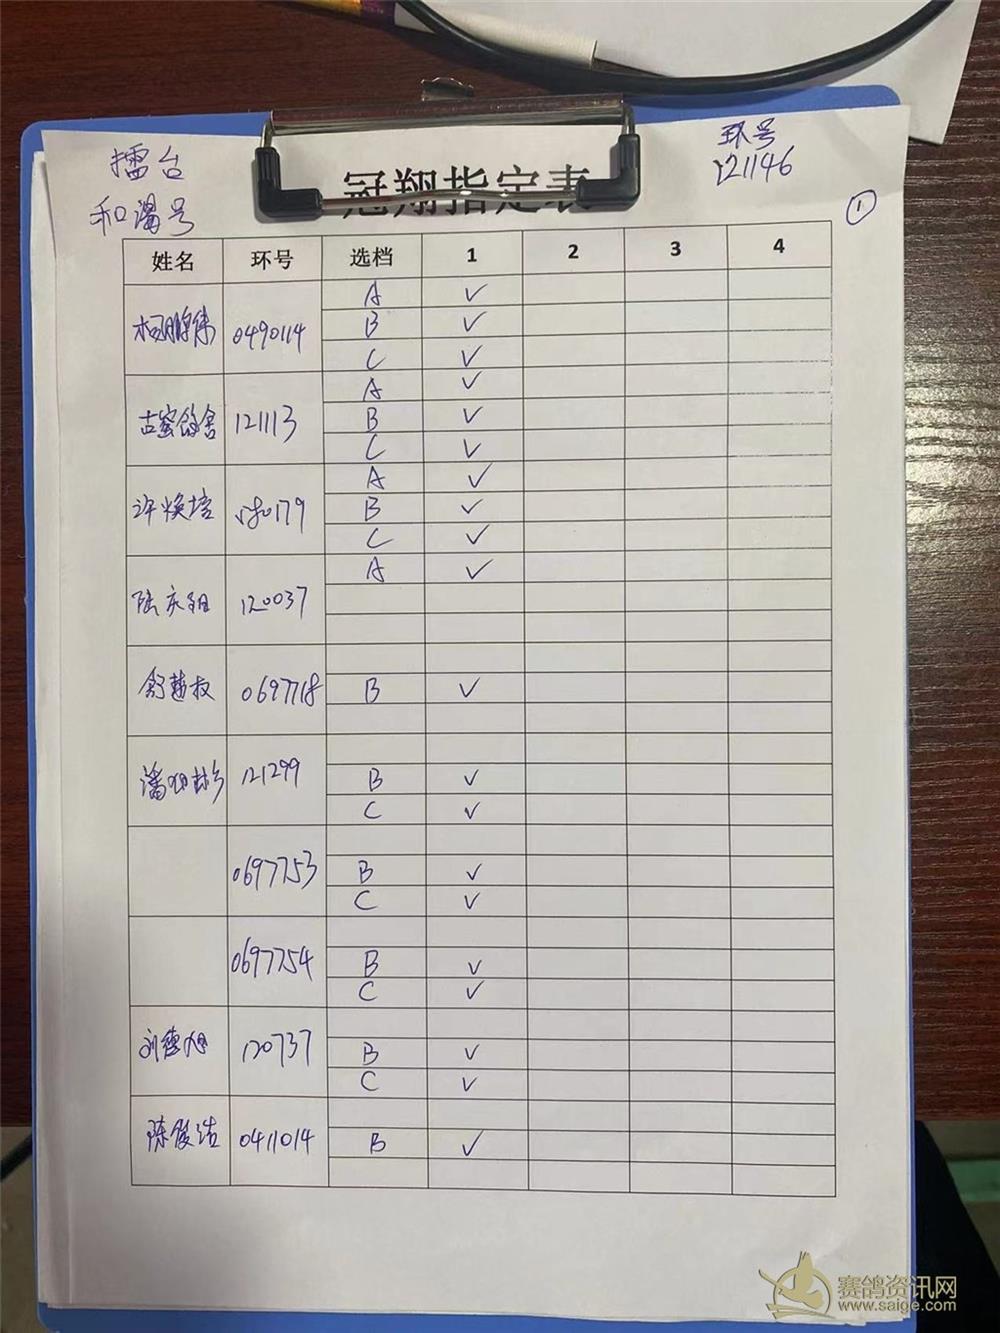 擂台
和谐号
冠翔指定表
环号
121146
①
姓名 环号 选档 1 2 3 4
杨鹏伟 0490114 A ✓
B ✓
C ✓
古蜜鸽舍 121113 A ✓
B ✓
C ✓
许焕培 180179 A ✓
B ✓
C ✓
陆庆 120037 A ✓
舒 0697718 B ✓
潘 彬 121299 B ✓
C ✓
0697753 B ✓
C ✓
0697754 B ✓
C ✓
刘德旭 120737 B ✓
C ✓
陈俊洁 0411014 B ✓
赛鸽资讯网
www.saige.com